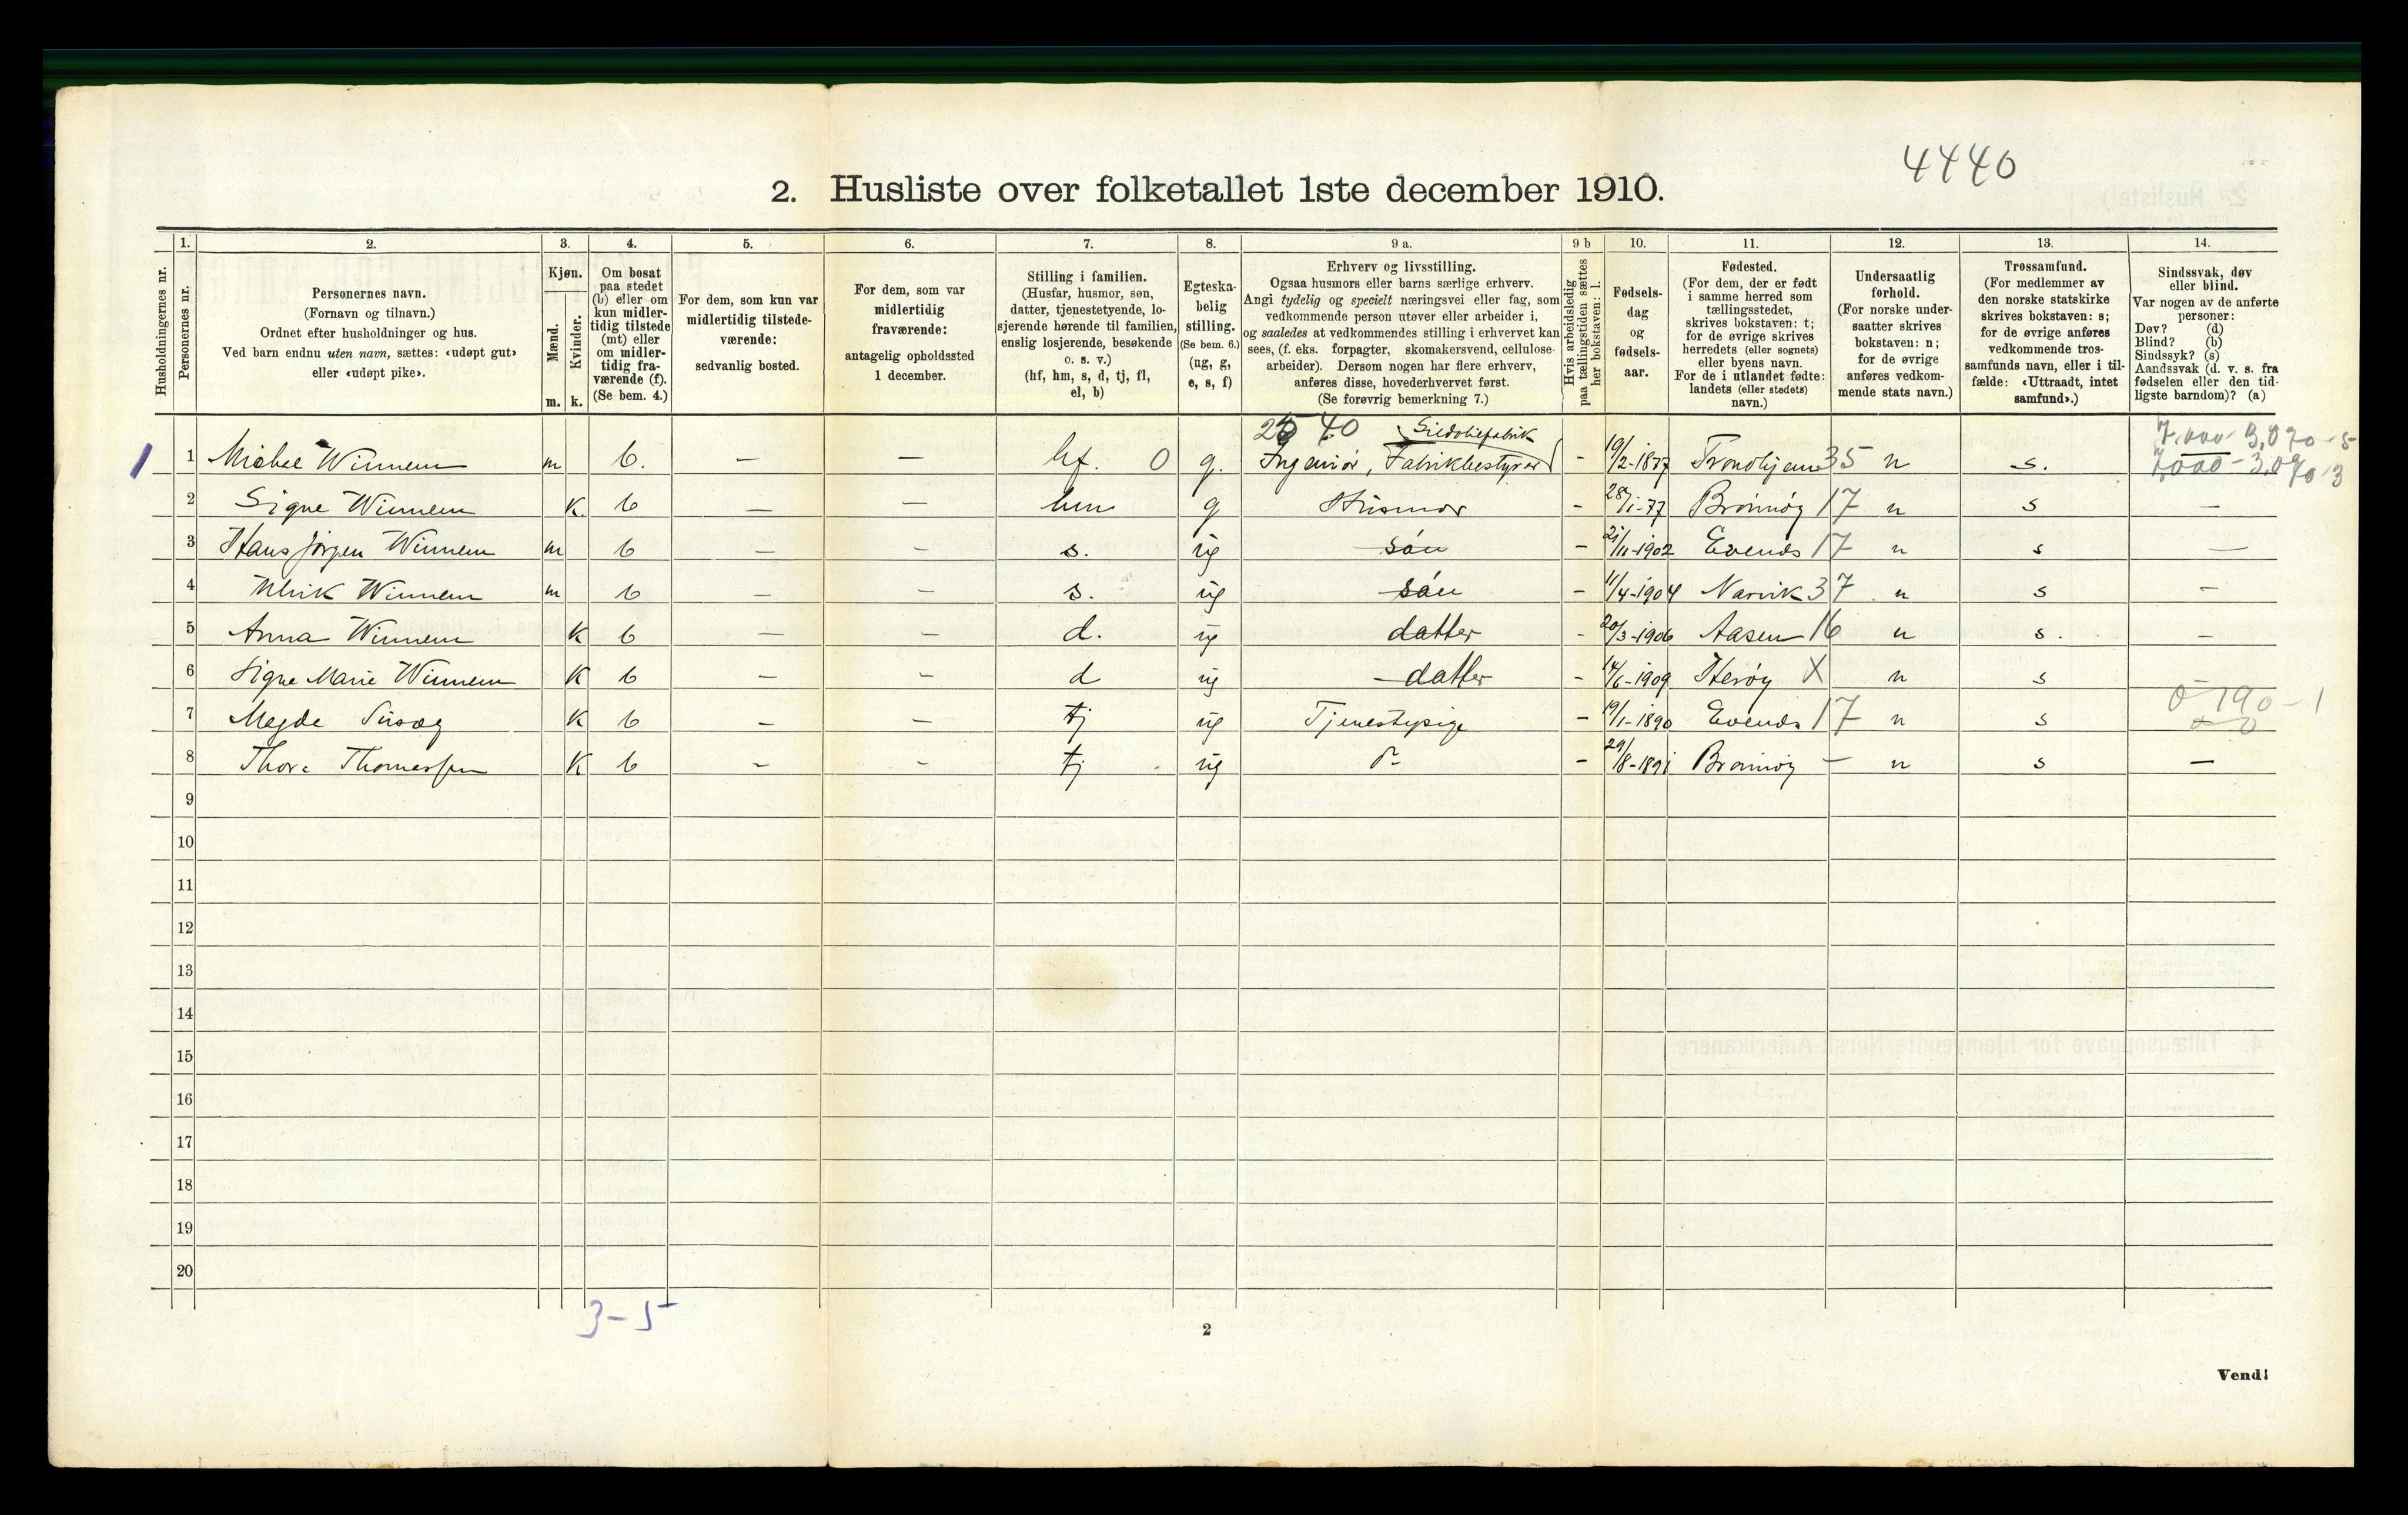 4440
2. Husliste over folketallet 1ste december 1910.
Husholdningernes nr.
1.
Personernes nr.
2.
Personernes navn.
(Fornavn og tilnavn.)
Ordnet efter husholdninger og hus.
Ved barn endnu uten navn, sættes: «udøpt gut»
eller «udøpt pike».
3.
Kjøn.
Mænd.
Kvinder.
m. k.
4.
Om bosat
paa stedet
(b) eller om
kun midler-
tidig tilstede
(mt) eller
om midler-
tidig fra-
værende (f).
(Se bem. 4.)
5.
For dem, som kun var
midlertidig tilstede-
værende:
sedvanlig bosted.
6.
For dem, som var
midlertidig
fraværende:
antagelig opholdssted
1 december.
7.
Stilling i familien.
(Husfar, husmor, søn,
datter, tjenestetyende, lo-
sjerende hørende til familien,
enslig losjerende, besøkende
o. s. v.)
(hf, hm, s, d, tj, fl,
el, b)
8.
Egteska-
belig
stilling.
(Se bem. 6.)
(ug, g,
e, s, f)
9 a.
Erhverv og livsstilling.
Ogsaa husmors eller barns særlige erhverv.
Angi tydelig og specielt næringsvei eller fag, som
vedkommende person utøver eller arbeider i,
og saaledes at vedkommendes stilling i erhvervet kan
sees, (f. eks. forpagter, skomakersvend, cellulose-
arbeider). Dersom nogen har flere erhverv,
anføres disse, hovederhvervet først.
(Se forøvrig bemerkning 7.)
9 b
Hvis arbeidsledig
paa tællingstiden sættes
her bokstaven: l.
10.
Fødsels-
dag
og
fødsels-
aar.
11.
Fødested.
(For dem, der er født
i samme herred som
tællingsstedet,
skrives bokstaven: t;
for de øvrige skrives
herredets (eller sognets)
eller byens navn.
For de i utlandet fødte:
landets (eller stedets)
navn.)
12.
Undersaatlig
forhold.
(For norske under-
saatter skrives
bokstaven: n;
for de øvrige
anføres vedkom-
mende stats navn.)
13.
Trossamfund.
(For medlemmer av
den norske statskirke
skrives bokstaven: s;
for de øvrige anføres
vedkommende tros-
samfunds navn, eller i til-
fælde: «Uttraadt, intet
samfund».)
14.
Sindssvak, døv
eller blind.
Var nogen av de anførte
personer:
Døv? (d)
Blind? (b)
Sindssyk? (s)
Aandssvak (d. v. s. fra
fødselen eller den tid-
ligste barndom)? (a)
40 Sildoliefabrik 7,000 3,070-5
1 1 Michel Winnem m b. — — hf. 0 g. Ingeniør, Fabrikbestyrer - 19/2-1877 Trondhjem 35 n s. 7,000-3,070-3
2 Signe Winnem k. b — — hm g Husmor - 28/1-77 Brønnøy 17 n s —
3 Hans Jørgen Winnem m b — - s. ug søn - 21/11-1902 Evenes 17 n s —
4 Ulrik Winnem m b — - s. ug søn - 11/4-1904 Narvik 37 n s -
5 Anna Winnem k b — - d. ug datter - 20/3-1906 Aasen 16 n s. -
6 Signe Marie Winnem k b — - d ug datter - 14/6-1909 Herøy X n s
0-190-1
7 Magda k b — - tj ug Tjenestepige - 19/1-1890 Evenes 17 n s
8 Thora Thomassen k b - - tj ug do - 29/8-1891 Brønnøy - n s —
9
10
11
12
13
14
15
16
17
18
19
20
3-5
2
Vend!